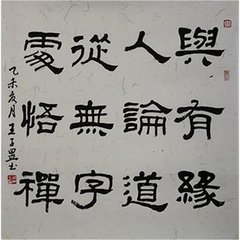 與有緣
人論道
從無字
處悟禪
乙未夏月王